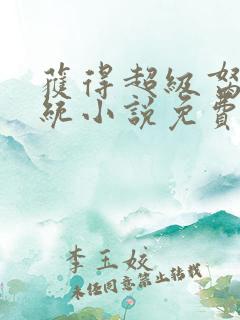 獲得超級
統小說免費
李玉姣
未经同意禁止转载